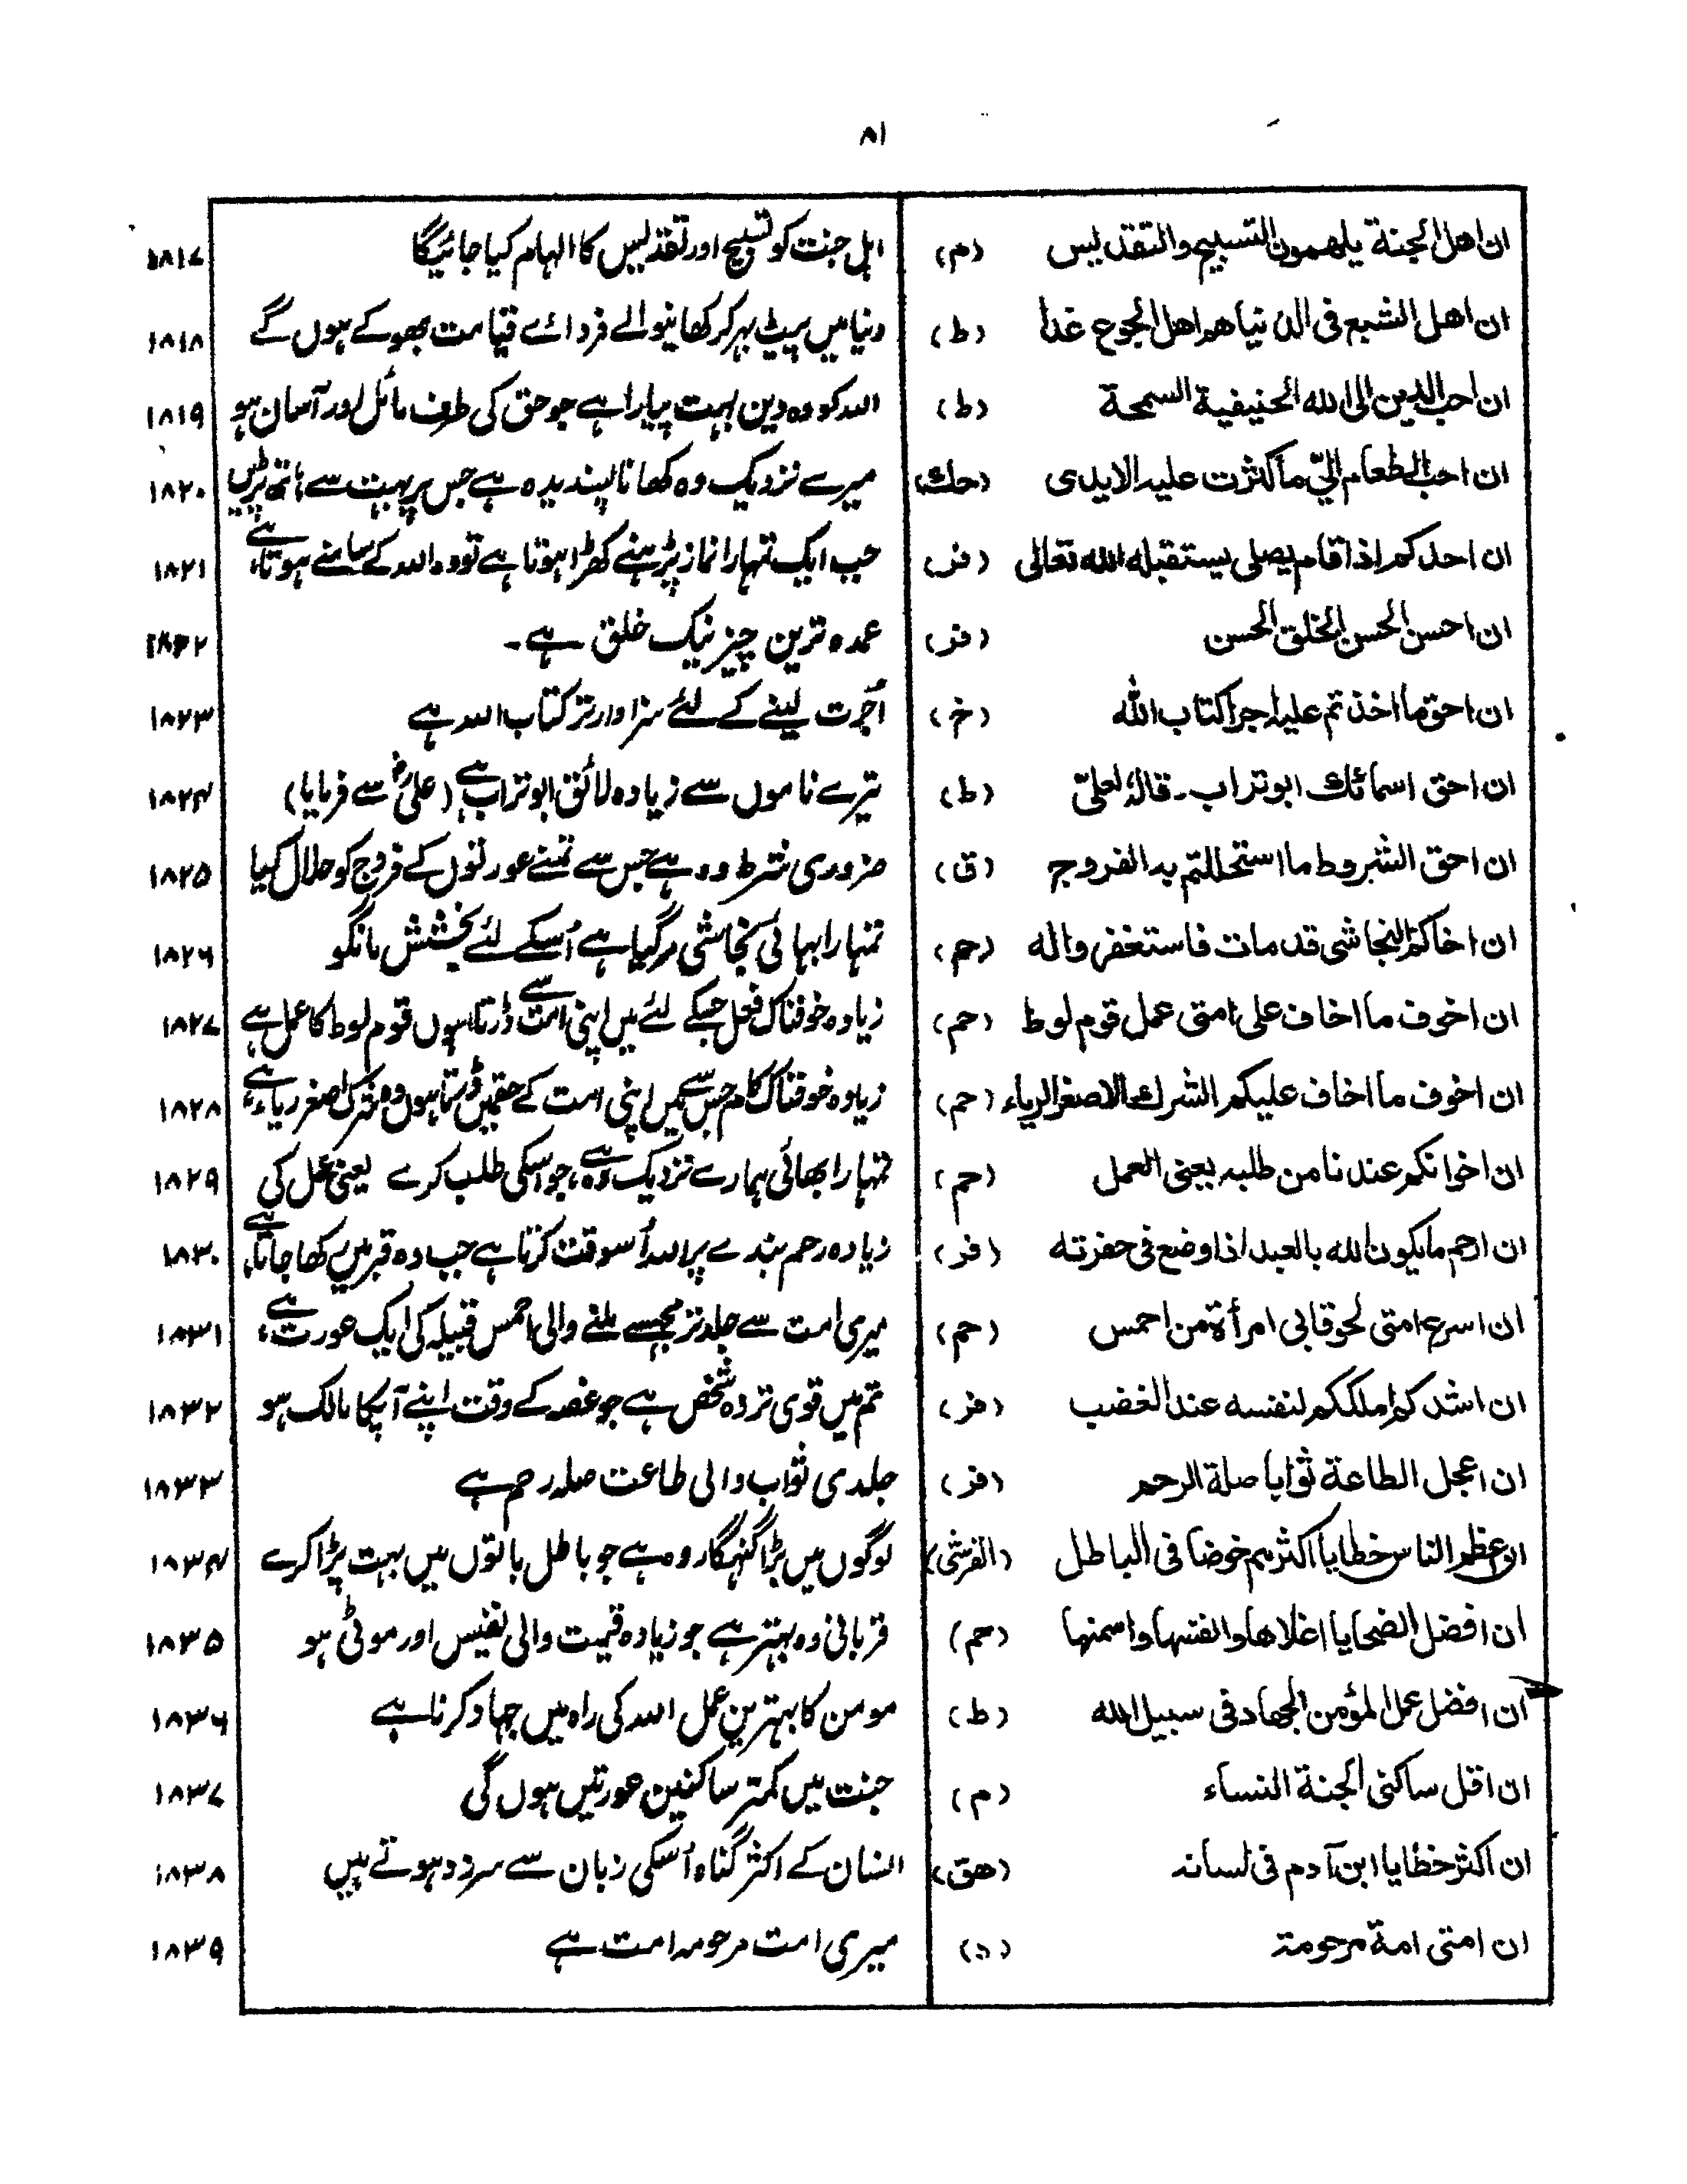 ۸۱
ان اهل الجنة يلهمون التسبيح والتقديس (م) اہل جنت کو تسبیح اور تقدیس کا الہام کیا جائیگا ۱۸۱۷
ان اهل الشبع فی الدنیا هم اهل الجوع غدا (ط) دنیا میں پیٹ بہر کر کھانیوالے فردائے قیامت بھوکے ہوں گے ۱۸۱۸
ان احب الدین الی الله الحنیفیة السمحة (ط) اللہ کو وہ دین بہت پیارا ہے جو حق کی طرف مائل اور آسان ہو ۱۸۱۹
ان احب الطعام الیّ ما کثرت علیه الایدی (حك) میرے نزدیک وہ کھانا پسندیدہ ہے جس پر بہت سے ہاتھ پڑیں ۱۸۲۰
ان احدکم اذا قام یصلی یستقبله الله تعالی (فر) جب ایک تمہارا نماز پڑہنے کھڑا ہوتا ہے تو وہ اللہ کے سامنے ہوتا ہے ۱۸۲۱
ان احسن الحسن الخلق الحسن (فر) عمدہ ترین چیز نیک خلق ہے۔ ۱۸۲۲
ان احق ما اخذتم علیه اجرا کتاب الله (خ) اُجرت لینے کے لئے سزاوار تر کتاب اللہ ہے ۱۸۲۳
ان احق اسمائك ابو تراب۔ قاله لعلیّ (ط) تیرے ناموں سے زیادہ لائق ابو تراب ہے (علیؓ سے فرمایا) ۱۸۲۴
ان احق الشروط ما استحللتم به الفروج (ق) ضروری شرط وہ ہے جس سے تمنے عورتوں کے فروج کو حلال کیا ۱۸۲۵
ان اخاکم النجاشی قد مات فاستغفروا له (حم) تمہارا بہائی نجاشی مر گیا ہے اُسکے لئے بخشش مانگو ۱۸۲۶
ان اخوف ما اخاف علی امتی عمل قوم لوط (حم) زیادہ خوفناک فعل جسکے لئے میں اپنی امت سے ڈرتا ہوں قوم لوط کا عمل ہے ۱۸۲۷
ان اخوف ما اخاف علیکم الشرك الاصغر الریاء (حم) زیادہ خوفناک کام جس سے میں اپنی امت کے حقمیں ڈرتا ہوں وہ شرک اصغر ریاء ہے ۱۸۲۸
ان اخوانکم عندنا من طلبه یعنی العمل (حم) تمہارا بھائی ہمارے نزدیک وہ ہے، جو اسکی طلب کرے یعنی عمل کی ۱۸۲۹
ان ارحم مایکون الله بالعبد اذا وضع فی حفرته (فر) زیادہ رحم بندے پر اللہ اُسوقت کرتا ہے جب وہ قبر میں رکھا جاتا ہے ۱۸۳۰
ان اسرع امتی لحوقا بی امرأة من احمس (حم) میری امت سے جلد تر مجہسے ملنے والی احمس قبیلہ کی ایک عورت ہے، ۱۸۳۱
ان اشدکم املککم لنفسه عند الغضب (فر) تم میں قوی تر وہ شخص ہے جو غصہ کے وقت اپنے آپکا مالک ہو ۱۸۳۲
ان اعجل الطاعة ثوابا صلة الرحم (فر) جلدی ثواب والی طاعت صلہ رحم ہے ۱۸۳۳
ان اعظم الناس خطایا اکثرهم خوضا فی الباطل (القرشی) لوگوں میں بڑا گنہگار وہ ہے جو باطل باتوں میں بہت پڑا کرے ۱۸۳۴
ان افضل الضحایا اغلاها وانفسها واسمنها (حم) قربانی وہ بہتر ہے جو زیادہ قیمت والی نفیس اور موٹی ہو ۱۸۳۵
ان افضل عمل المؤمن الجهاد فی سبیل الله (ط) مومن کا بہترین عمل اللہ کی راہ میں جہاد کرنا ہے ۱۸۳۶
ان اقل ساکنی الجنة النساء (م) جنت میں کمتر ساکنین عورتیں ہوں گی ۱۸۳۷
ان اکثر خطایا ابن آدم فی لسانه (هق) انسان کے اکثر گناہ اُسکی زبان سے سرزد ہوتے ہیں ۱۸۳۸
ان امتی امة مرحومة (د) میری امت مرحومہ امت ہے ۱۸۳۹